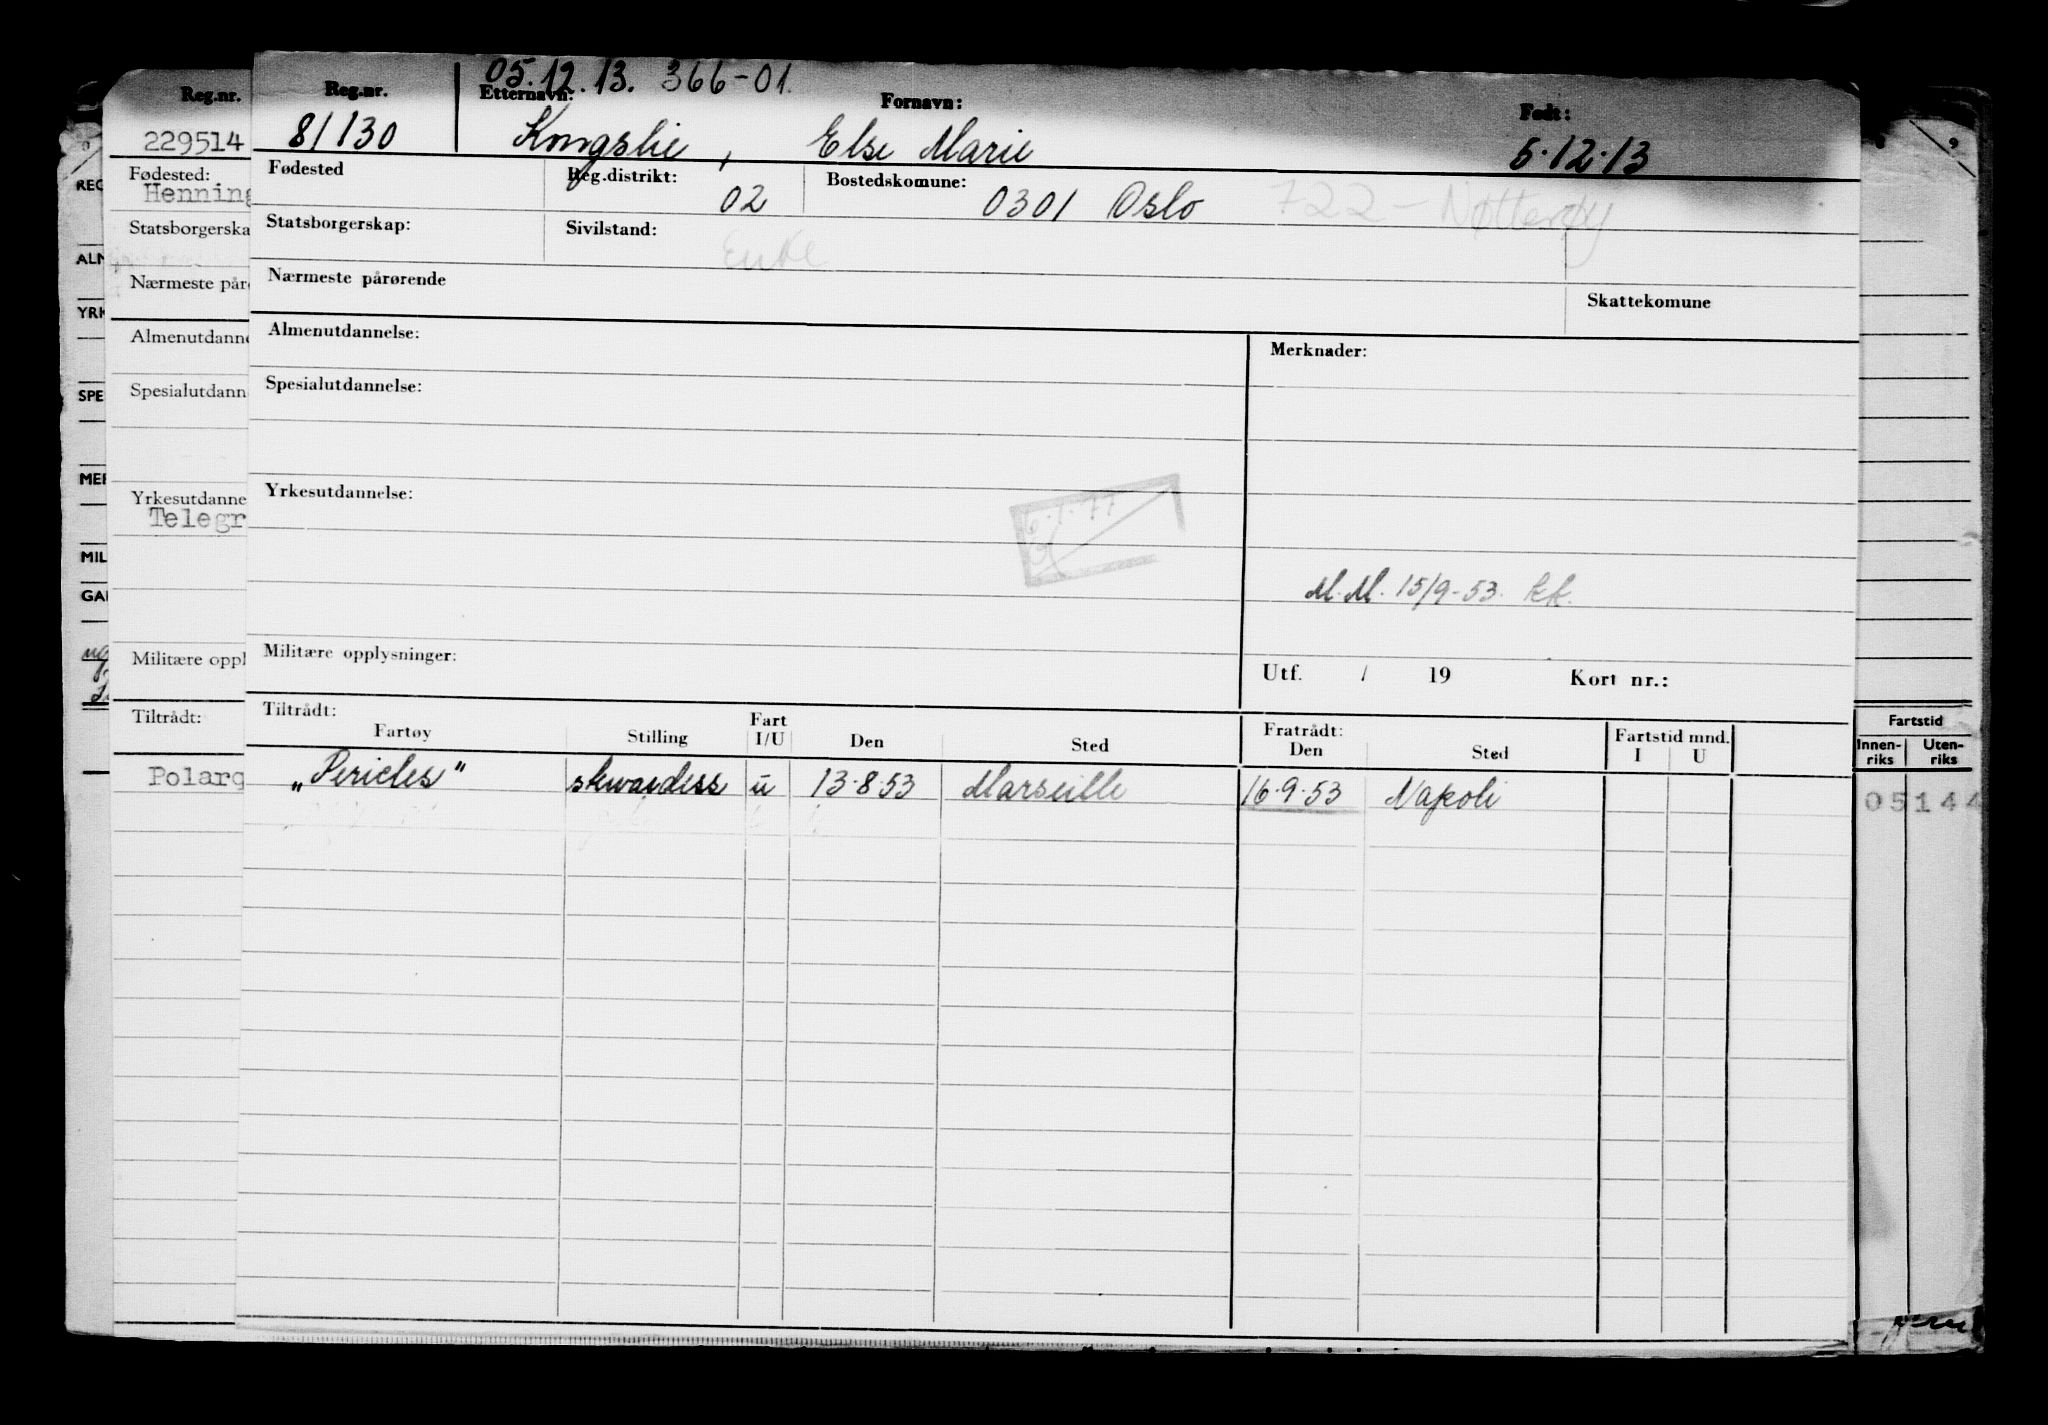 05.12.13. 366-01.
Reg.nr. Reg.nr. Etternavn: Fornavn: Født:
229514 81130 Kongslie, Else Marie 5.12.13
Fødested: Fødested Reg.distrikt: 02 Bostedskomune: 0301 Oslo 722 - Nøtterøy
Henning
REG
Statsborgerska Statsborgerskap: Sivilstand: Enke
ALM
Nærmeste pår Nærmeste pårørende Skattekomune
YRK
Almenutdann Almenutdannelse: Merknader:
SPE Spesialutdann Spesialutdannelse:
MER Yrkesutdanne Yrkesutdannelse:
Telegr 6.1.77
MIL
GA M.M. 15/9-53.
Militære oppl Militære opplysninger: Utf. / 19 Kort nr.:
Tiltrådt: Tiltrådt: Fratrådt: Fartstid
Fartøy Stilling Fart I/U Den Sted Den Sted Fartstid mnd. I U Innen-riks Uten-riks
Polarq „Pericles" stewardess u 13.8.53 Marseille 16.9.53 Napoli 05144